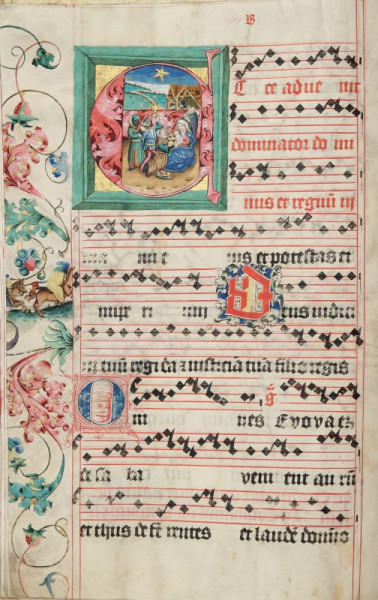 cce adve nit
dominator do mi
nus et regnū in
ma nu e ius et potestas et
impe ri um Deus iudici
um tuū regi da z iusticiā tuā filio regis
O m nes Evovaez
et sa ba venient aurū
et thus deferentes et laudē domīo